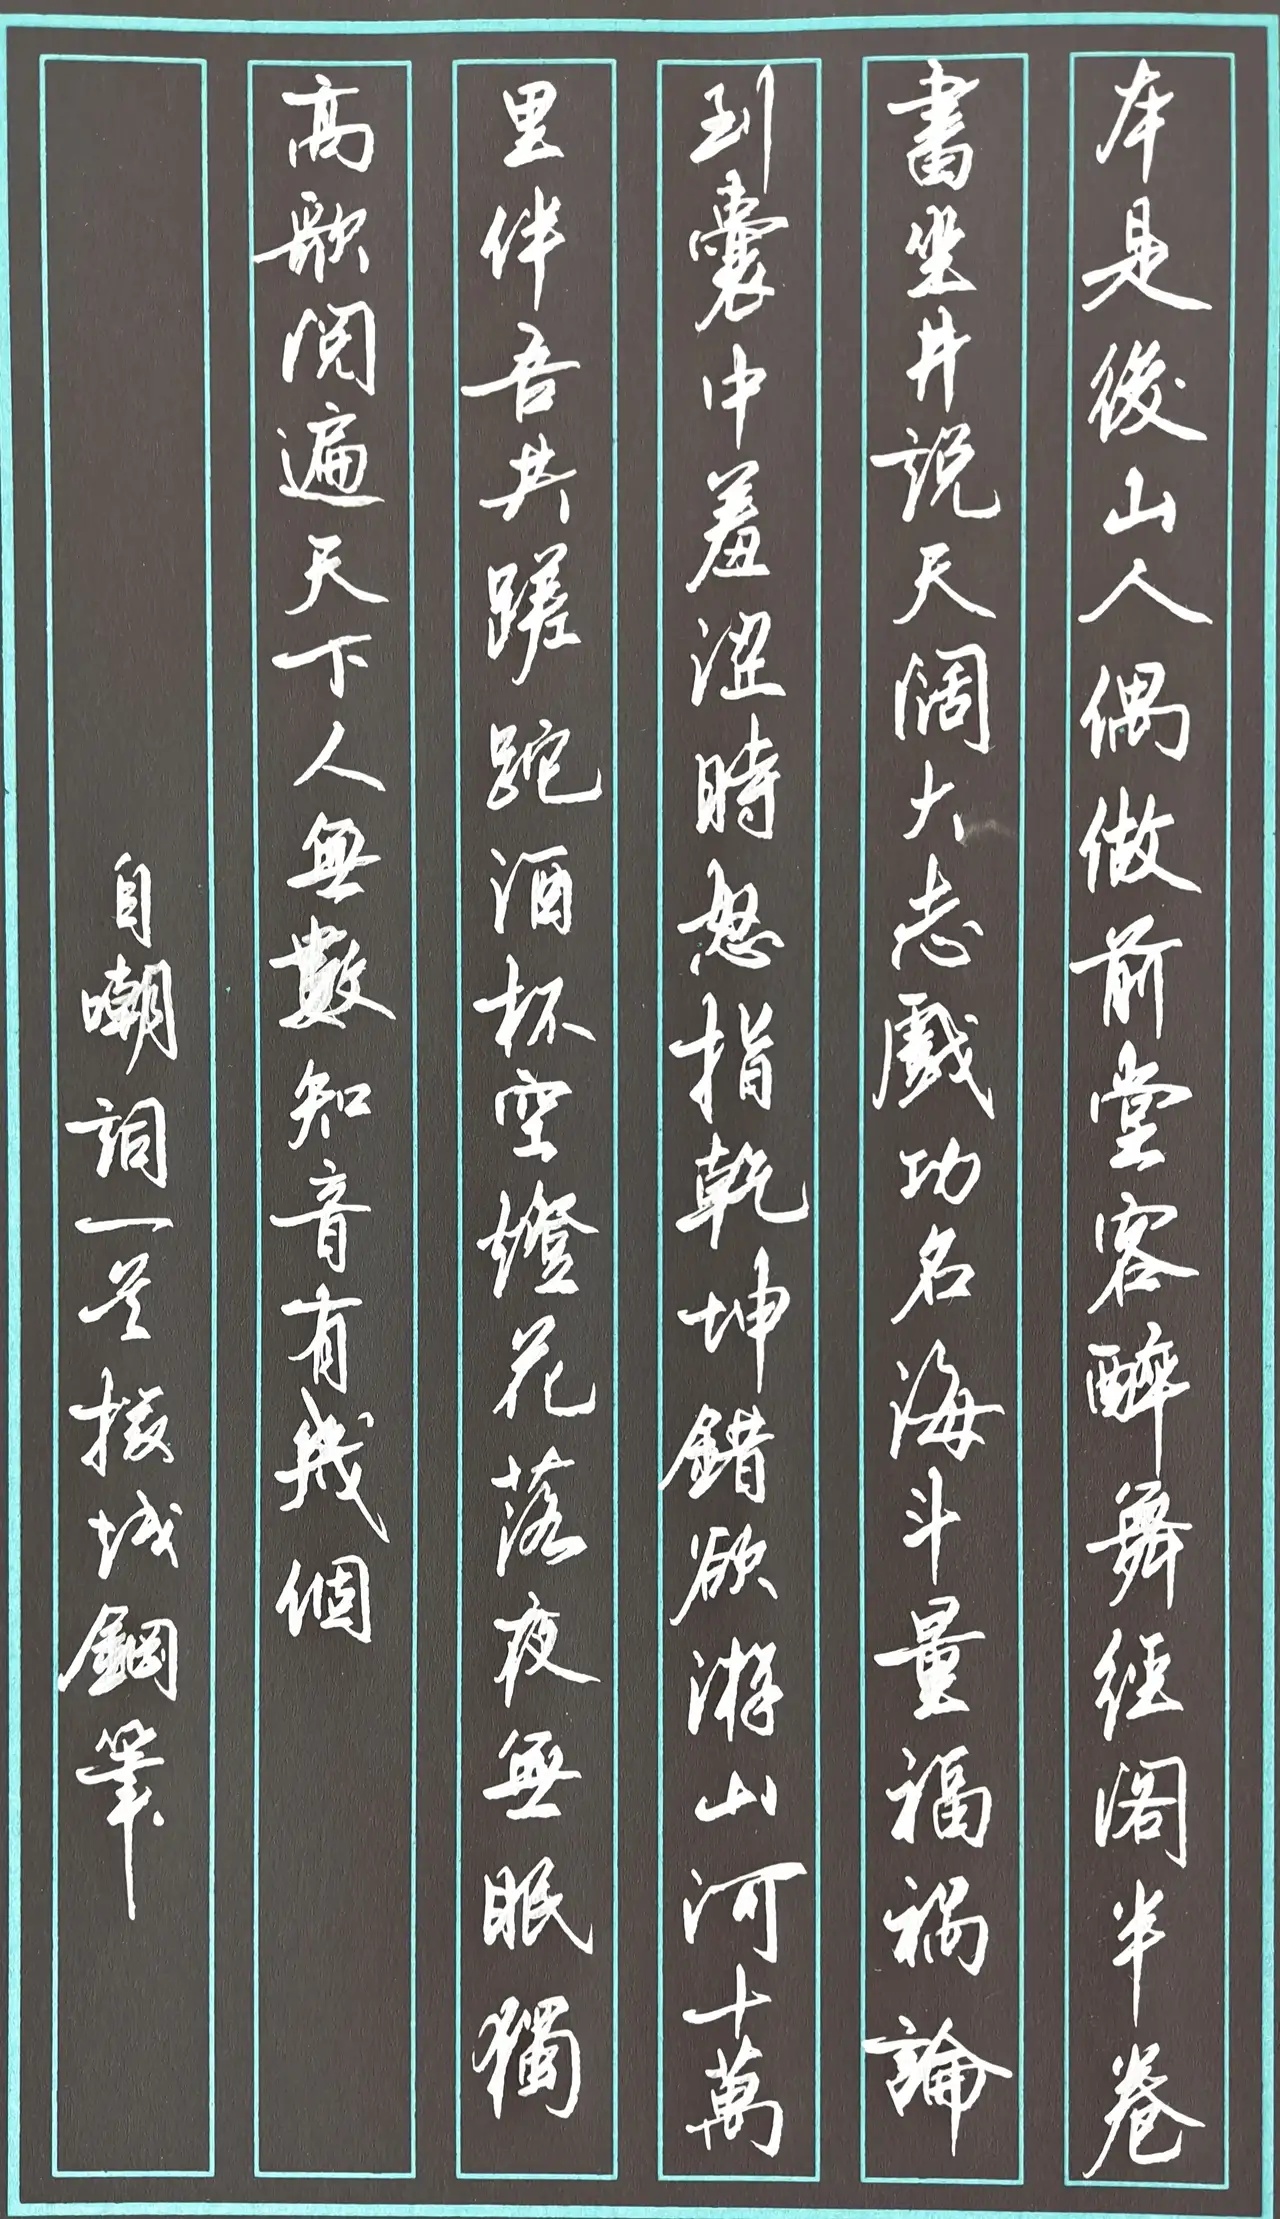 本是後山人偶做前堂客醉舞經閣半卷
書坐井説天闊大志戲功名海斗量福禍論
到囊中羞澀時怒指乾坤錯欲游山河十萬
里伴吾共蹉跎酒杯空燈花落夜無眠獨
高歌閲遍天下人無數知音有幾個
自嘲詞一首 城鋼筆